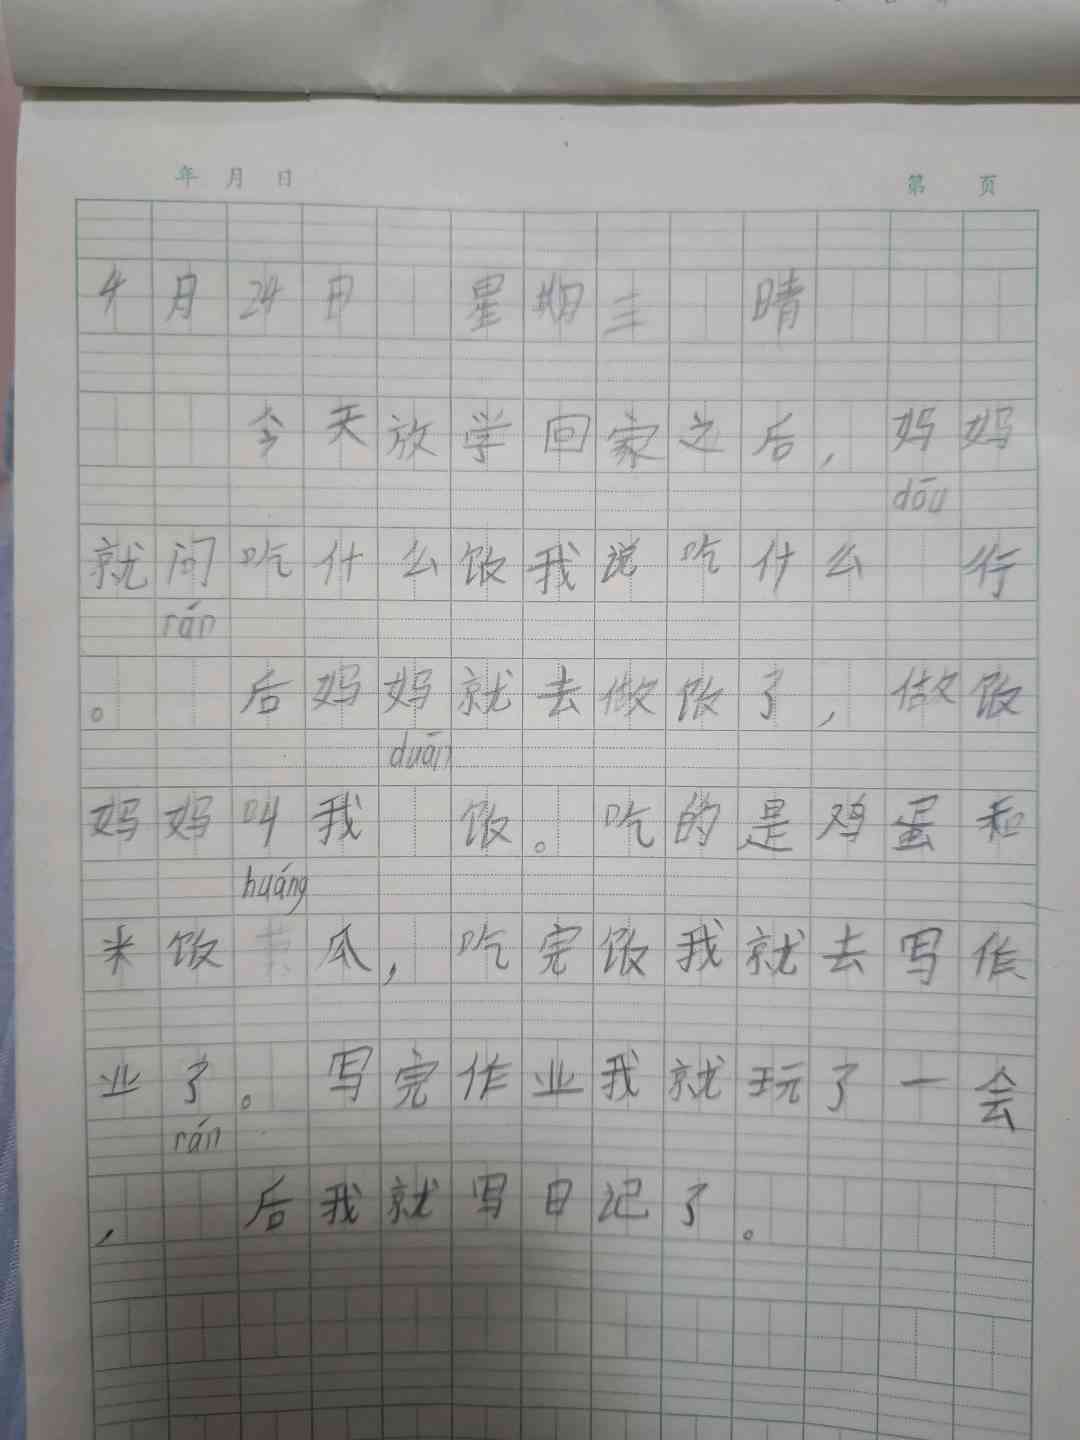 年 月 日 第 页
4月24日 星期三 晴
今天放学回家之后,妈妈
dōu
就问吃什么饭我说吃什么 行
rán
。 后妈妈就去做饭了,做饭
duān
妈妈叫我 饭。吃的是鸡蛋和
huáng
米饭 瓜,吃完饭我就去写作
业了。写完作业我就玩了一会
rán
, 后我就写日记了。